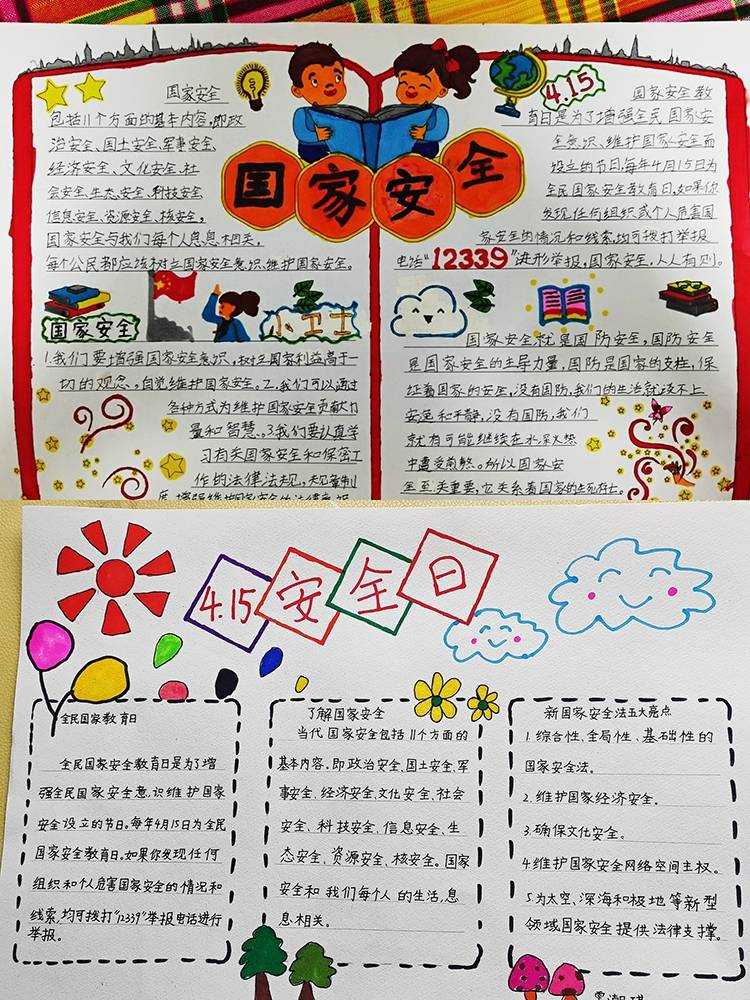 国家安全
国家安全
包括11个方面的基本内容,即政
治安全、国土安全、军事安全、
经济安全、文化安全、社
会安全、生态安全、科技安全
信息安全、资源安全、核安全。
国家安全与我们每个人息息相关,
每个公民都应该树立国家安全意识、维护国家安全。
4.15
国家安全教
育日是为了增强全民国家安
全意识、维护国家安全而
设立的节日每年4月15日为
全民国家安全教育日,如果你
发现任何组织或个人危害国
家安全的情况和线索,均可拨打举报
电话“12339”进形举报,国家安全,人人有则。
国家安全
小卫士
1.我们要增强国家安全意识,树立国家利益高于一
切的观念。自觉维护国家安全。2.我们可以通过
各种方式为维护国家安全贡献力
量和智慧。3.我们要认真学
习有关国家安全和保密工
作的法律法规,
国家安全就是国防安全,国防安全
是国家安全的主导力量,国防是国家的支柱,保
证着国家的安全,没有国防,我们的生活就谈不上
安逸和平静,没有国防,我们
就有可能继续在水深火热
中遭受煎熬。所以国家安
全至关重要,它关系着国家的生死存亡。
4.15安全日
全民国家教育日
全民国家安全教育日是为了增
强全民国家安全意识维护国家
安全设立的节日。每年4月15日为全民
国家安全教育日。如果你发现任何
组织和个人危害国家安全的情况和
线索,均可拨打“12339”举报电话进行
举报。
了解国家安全
当代国家安全包括11个方面的
基本内容。即政治安全、国土安全、军
事安全、经济安全、文化安全、社会
安全、科技安全、信息安全、生
态安全、资源安全、核安全。国家
安全和我们每个人的生活,息
息相关。
新国家安全法五大亮点
1.综合性、全局性、基础性的
国家安全法。
2.维护国家经济安全。
3.确保文化安全。
4.维护国家安全网络空间主权。
5.为太空、深海和极地等新型
领域国家安全提供法律支撑。